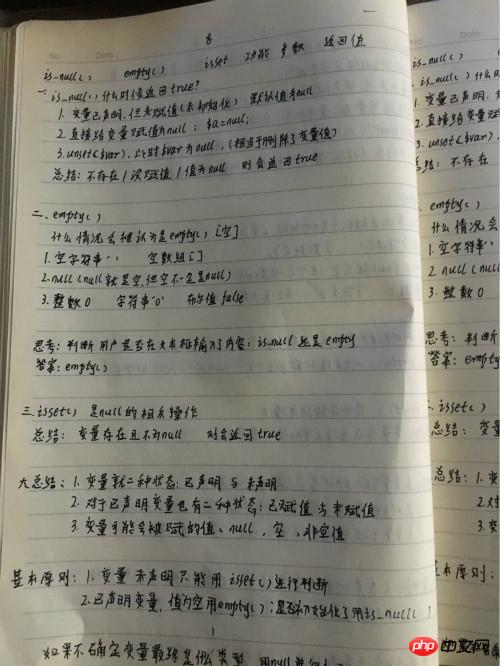 8
is_null() empty() isset 功能 参数 返回值
一. is_null() 什么时候返回true?
1. 变量已声明,但未赋值(未初始化) 默认值为null
2. 直接给变量赋值为null ; $a=null;
3. unset($var), 此时$var为null ,(相当于删除了变量值)
总结: 不存在 / 没赋值 / 值为null 则会返回true
二、empty()
什么情况会被认为是empty() [空]
1. 空字符串'' 空数组[]
2. null (null就是空,但空不一定是null)
3. 整数0 字符串'0' 布尔值 false
思考: 判断用户是否在文本框输入了内容: is_null 还是empty
答案: empty()
三. isset() 是null的相反操作
总结: 变量存在且不为null 则会返回true
大总结: 1. 变量就二种状态: 已声明 与 未声明
2. 对于已声明变量也有二种状态: 已赋值 与 未赋值
3. 变量可能会被赋的值: null , 空 , 非空值
基本原则: 1. 变量未声明 只能用 isset() 进行判断
2. 已声明变量, 值为空用empty() ; 是否初始化了用is_null()
如果不确定变量最终是什么类型 用null
is_null()
is_null() 什么时
变量已声明,
直接给变
unset($va
总结: 不存在
empty()
什么情况
1. 空字符串
2. null (null
3. 整数0
思考: 判断
答案: empty
isset()
总结: 变量
总结: 1. 变
2. 对
3. 变
基本原则:
php 中文网